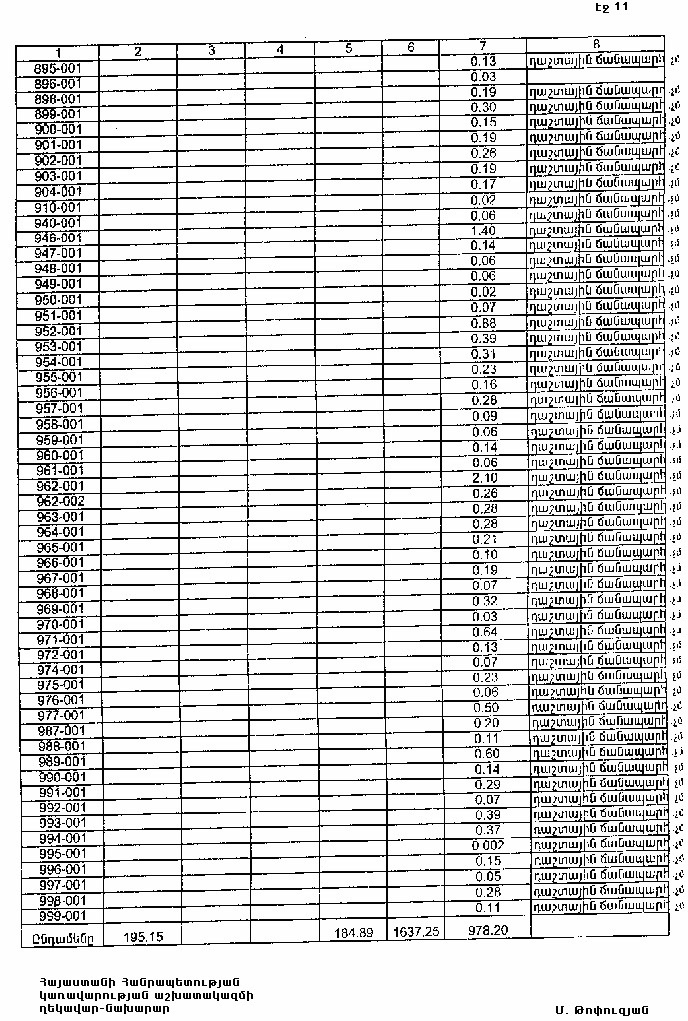 Էջ 11
1 2 3 4 5 6 7 8
895-001 0.13 դաշտային ճանապարհ
896-001 0.03
898-001 0.19 դաշտային ճանապարհ
899-001 0.30 դաշտային ճանապարհ
900-001 0.15 դաշտային ճանապարհ
901-001 0.19 դաշտային ճանապարհ
902-001 0.26 դաշտային ճանապարհ
903-001 0.19 դաշտային ճանապարհ
904-001 0.17 դաշտային ճանապարհ
910-001 0.02 դաշտային ճանապարհ
940-001 0.06 դաշտային ճանապարհ
946-001 1.40 դաշտային ճանապարհ
947-001 0.14 դաշտային ճանապարհ
948-001 0.06 դաշտային ճանապարհ
949-001 0.06 դաշտային ճանապարհ
950-001 0.02 դաշտային ճանապարհ
951-001 0.07 դաշտային ճանապարհ
952-001 0.88 դաշտային ճանապարհ
953-001 0.39 դաշտային ճանապարհ
954-001 0.31 դաշտային ճանապարհ
955-001 0.23 դաշտային ճանապարհ
956-001 0.16 դաշտային ճանապարհ
957-001 0.28 դաշտային ճանապարհ
958-001 0.09 դաշտային ճանապարհ
959-001 0.06 դաշտային ճանապարհ
960-001 0.14 դաշտային ճանապարհ
961-001 0.06 դաշտային ճանապարհ
962-001 2.10 դաշտային ճանապարհ
962-002 0.26 դաշտային ճանապարհ
963-001 0.28 դաշտային ճանապարհ
964-001 0.28 դաշտային ճանապարհ
965-001 0.21 դաշտային ճանապարհ
966-001 0.10 դաշտային ճանապարհ
967-001 0.19 դաշտային ճանապարհ
968-001 0.07 դաշտային ճանապարհ
969-001 0.32 դաշտային ճանապարհ
970-001 0.03 դաշտային ճանապարհ
971-001 0.64 դաշտային ճանապարհ
972-001 0.13 դաշտային ճանապարհ
974-001 0.07 դաշտային ճանապարհ
975-001 0.23 դաշտային ճանապարհ
976-001 0.06 դաշտային ճանապարհ
977-001 0.50 դաշտային ճանապարհ
987-001 0.20 դաշտային ճանապարհ
988-001 0.11 դաշտային ճանապարհ
989-001 0.60 դաշտային ճանապարհ
990-001 0.14 դաշտային ճանապարհ
991-001 0.29 դաշտային ճանապարհ
992-001 0.07 դաշտային ճանապարհ
993-001 0.39 դաշտային ճանապարհ
994-001 0.37 դաշտային ճանապարհ
995-001 0.002 դաշտային ճանապարհ
996-001 0.15 դաշտային ճանապարհ
997-001 0.05 դաշտային ճանապարհ
998-001 0.28 դաշտային ճանապարհ
999-001 0.11 դաշտային ճանապարհ
Ընդամենը 195.15 184.89 1637.25 978.20
Հայաստանի Հանրապետության
կառավարության աշխատակազմի
ղեկավար-նախարար Մ. Թոփուզյան